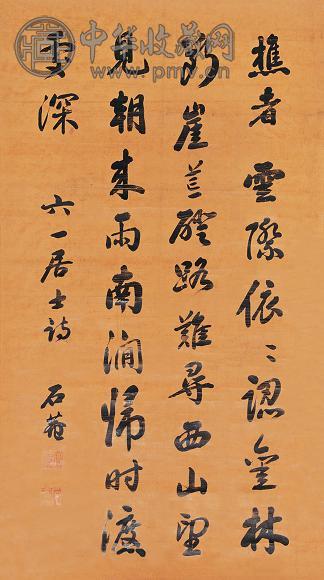 中華收藏网
www.pmv.cn
樵者雲際依〻認舊林
斷崖荒磴路難尋西山望
見朝来雨南澗歸时渡
處深 六一居士詩 石菴